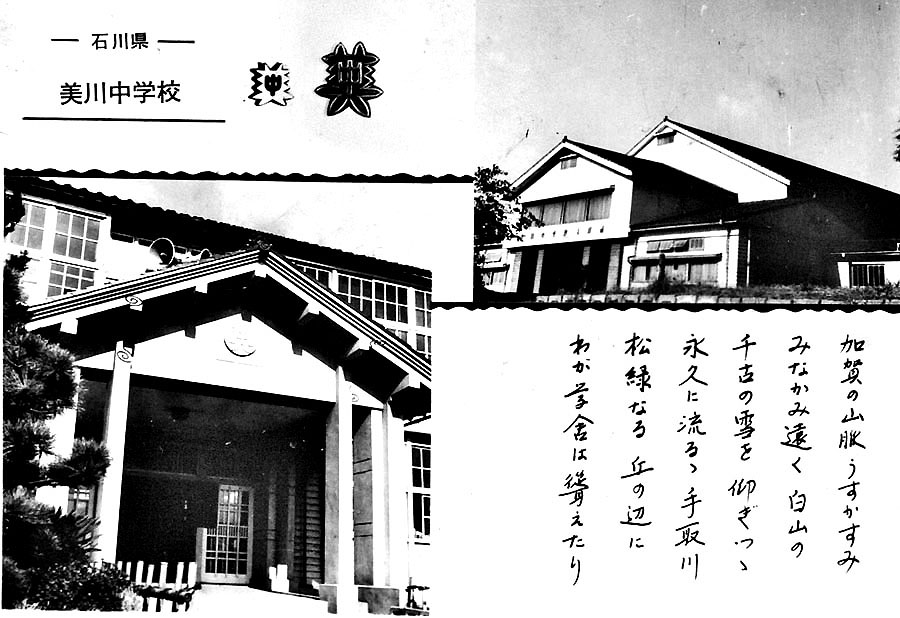 石川県
美川中学校
中
加賀の山脈うすかすみ
みなかみ遠く 白山の
千古の雪を 仰ぎつゝ
永久に流るゝ手取川
松緑なる 丘の辺に
わが学舎は聳えたり